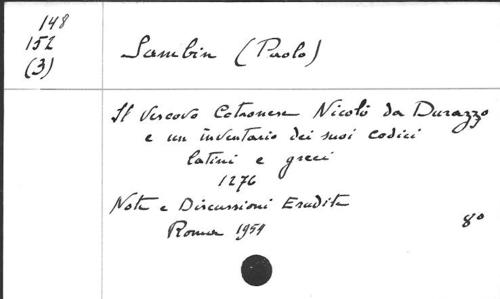 148
152
(3)
Sambin (Paolo)
Il vescovo Cotronese Nicolò da Durazzo
e un inventario dei suoi codici
latini e greci
1276
Note e Discussioni Erudite
Roma 1954
8°